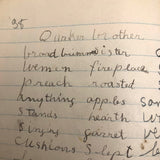 95
Quaker brother
broad brimmed sister
women fireplace
preach roasted S
anything apples so
stands hearth W
sings garret ve
cushions slept